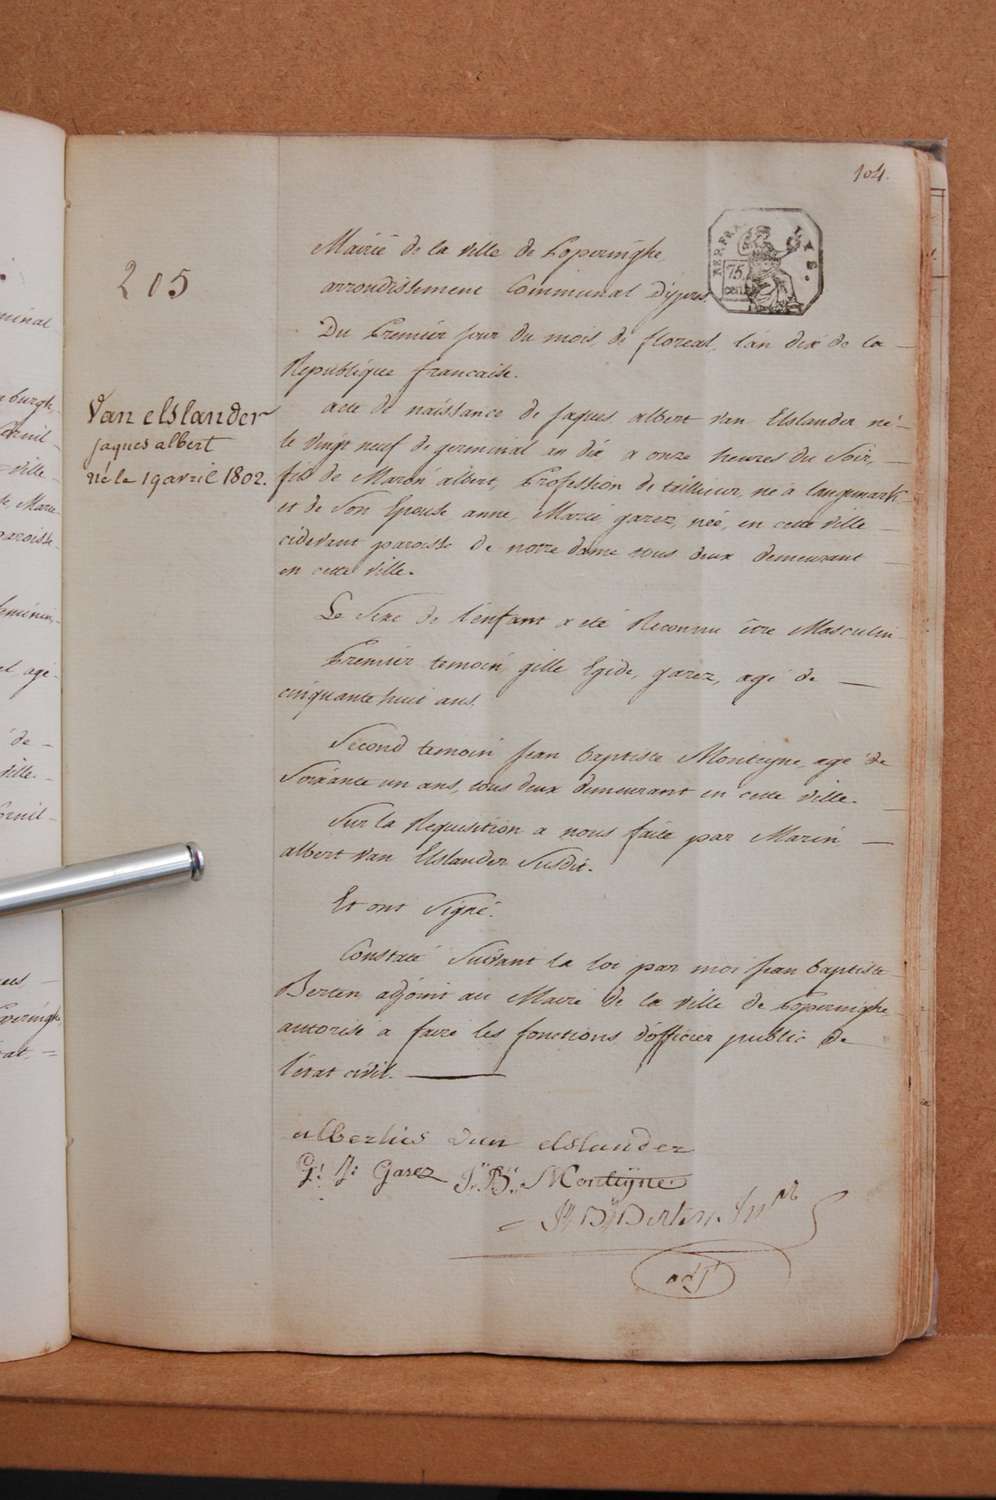 104.
Mairié de la Ville de Poperinghe
arrondissement Communal D'ypres
REP. FRA
75
CENT
LYS.
205
Du Premier jour du mois de floreal, l'an dix de la
Republique francaise.
Van elslander
jaques albert
né le 19 avril 1802.
acte de naissance de jaques albert Van Elslander né
le vingt neuf de germinal an dix a onze heures du Soir,
fils de Marin albert, Profession de tailleur, né à langemark
et de Son Epouse anne Marie garez, née, en cette Ville
cidevant paroisse de notre dame tous deux demeurant
en cette Ville.
Le Sexe de l'enfant a été Reconnu être Masculin
Premier temoin gille Egide, garez, agé de
cinquante huit ans.
Second temoin jean baptiste Monteyne agé de
Soixante un ans, tous deux demeurant en cette Ville.
Sur la Requisition a nous faite par Marin
albert Van Elslander Susdit.
Et ont Signé.
Constaté Suivant la loi par moi jean baptiste
Berten adjoint au Maire de la Ville de Poperinghe
autorisé a faire les fonctions d'officier public de
l'etat civil.
albertus van elslander
G: J: Garez J:B: Monteÿne
J: B: Berten
adjt
minal
burgh,
Ville
Marie
paroisse
feminin,
agé
de
Ville.